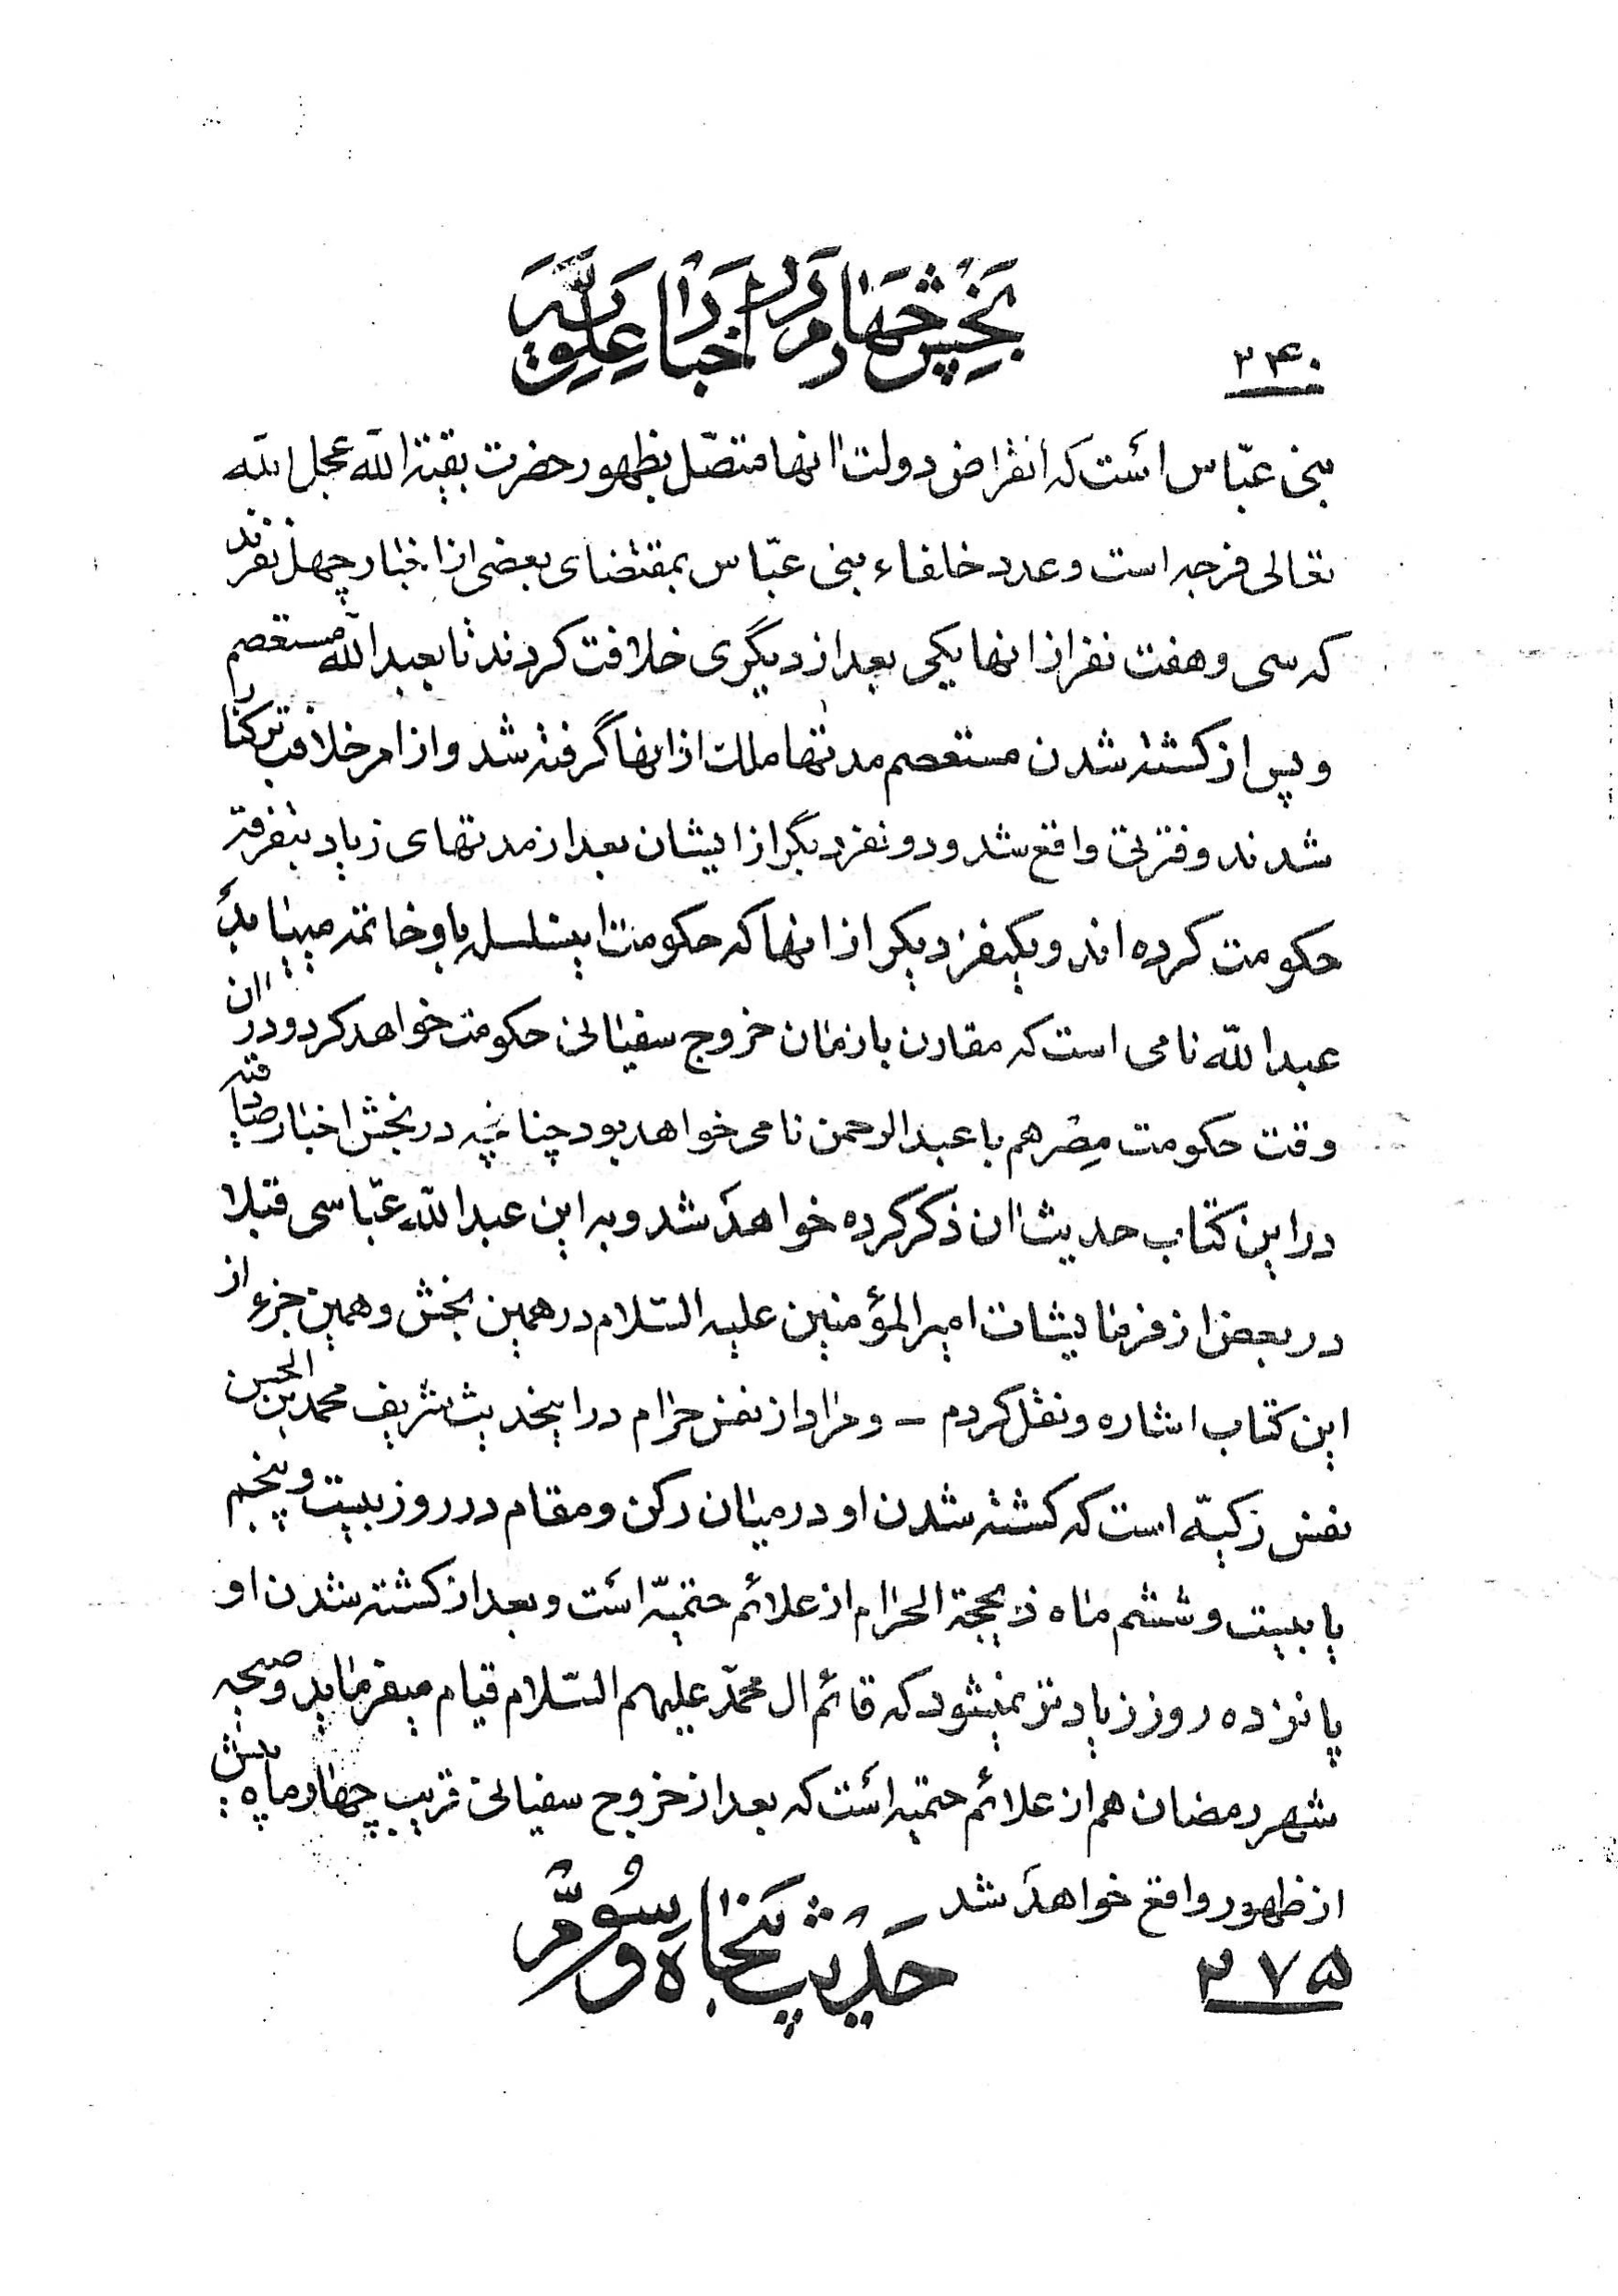 بخش چهارم در اخبار علویّه
۲۴۰
بنی عبّاس است که انقراض دولت انها متصّل بظهور حضرت بقیة الله عجل الله
تعالی فرجه است و عدد خلفاء بنی عبّاس بمقتضای بعضی از اخبار چهل نفرند
که سی و هفت نفر از انها یکی بعد از دیگری خلافت کردند تا بعبد الله مستعصم
و پس از کشته شدن مستعصم مدتها ملک از انها گرفته شد و از امر خلافت برکنار
شدند و فترتی واقع شد و دو نفر دیگر از ایشان بعد از مدتهای زیاد بتفرقه
حکومت کرده اند و یکنفر دیگر از انها که حکومت اینسلسله باو خاتمه میبابد
عبد الله نامی است که مقارن با زمان خروج سفیانی حکومت خواهد کرد و در ان
وقت حکومت مصر هم با عبد الرحمن نامی خواهد بود چنانچه در بخش اخبار صادقیه
در این کتاب حدیث ان ذکر کرده خواهد شد و به این عبد الله عبّاسی قبلا
در بعض از فرمایشات امیر المؤمنین علیه السّلام در همین بخش و همین جزء از
این کتاب اشاره و نقل کردم – و مراد از نفس حرام در اینحدیث شریف محمد بن الحسن
نفس زکیّه است که کشته شدن او در میان رکن و مقام در روز بیست و پنجم
یا بیست و ششم ماه ذیحجة الحرام از علائم حتمیّه است و بعد از کشته شدن او
پانزده روز زیادتر نمیشود که قائم ال محمّد علیهم السّلام قیام میفرماید و صیحه
شهر رمضان هم از علائم حتمیه است که بعد از خروج سفیانی قریب چهار ماه پیش
از ظهور واقع خواهد شد
۲۷۵
حدیث پنجاه و سوّم